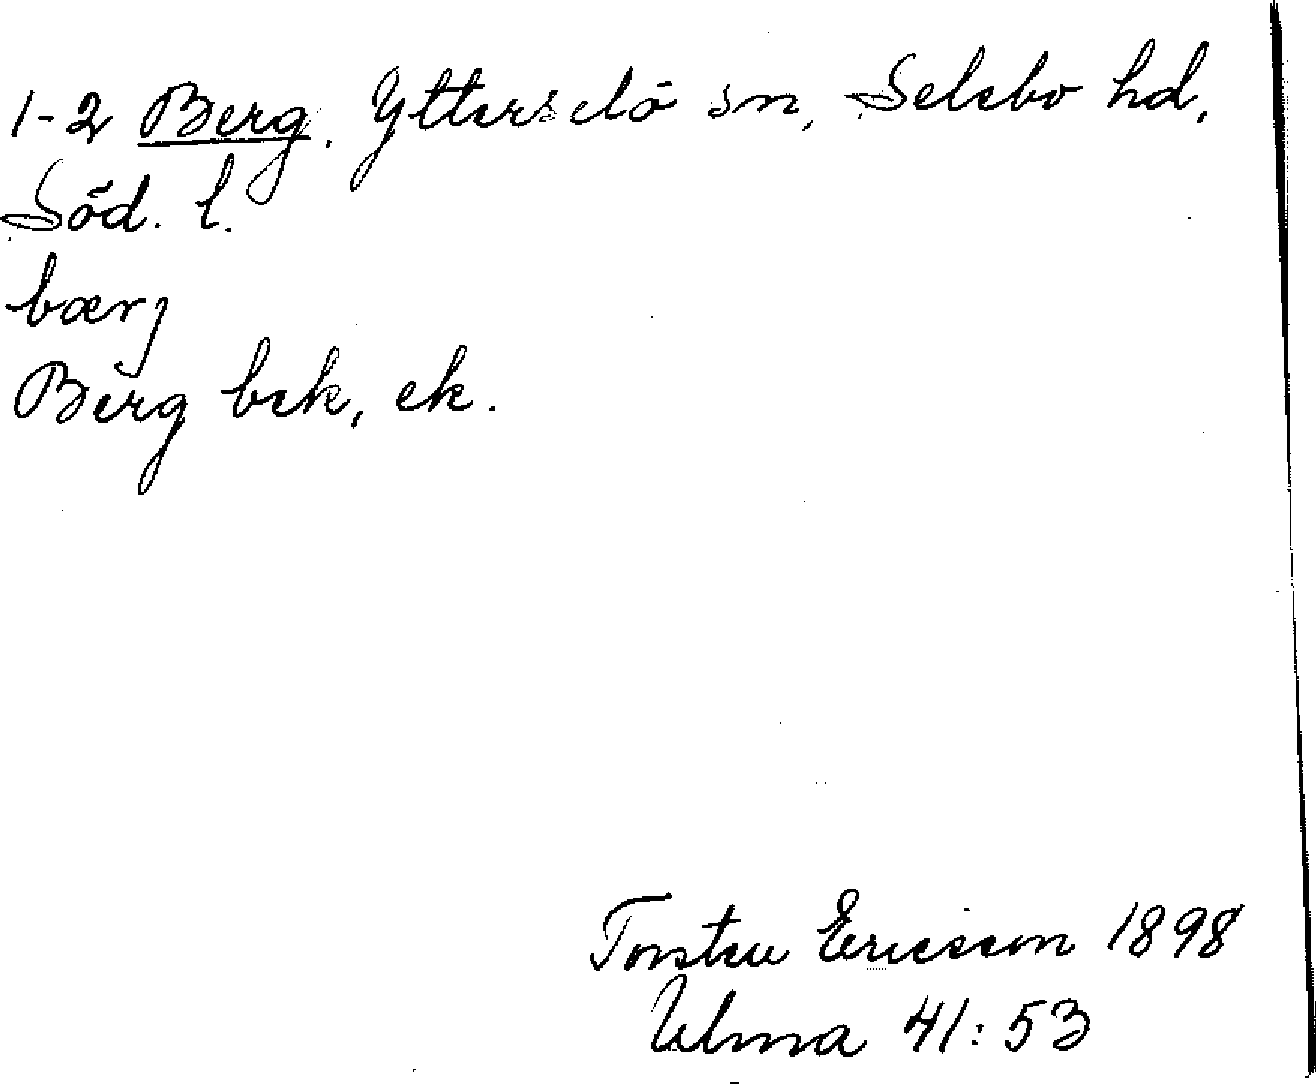 1-2 Berg. Ytterselö sn, Selebo hd,
Söd. l.
bærj
Berg bek, ek.
Torsten Ericsson 1898
Ulma 41:53